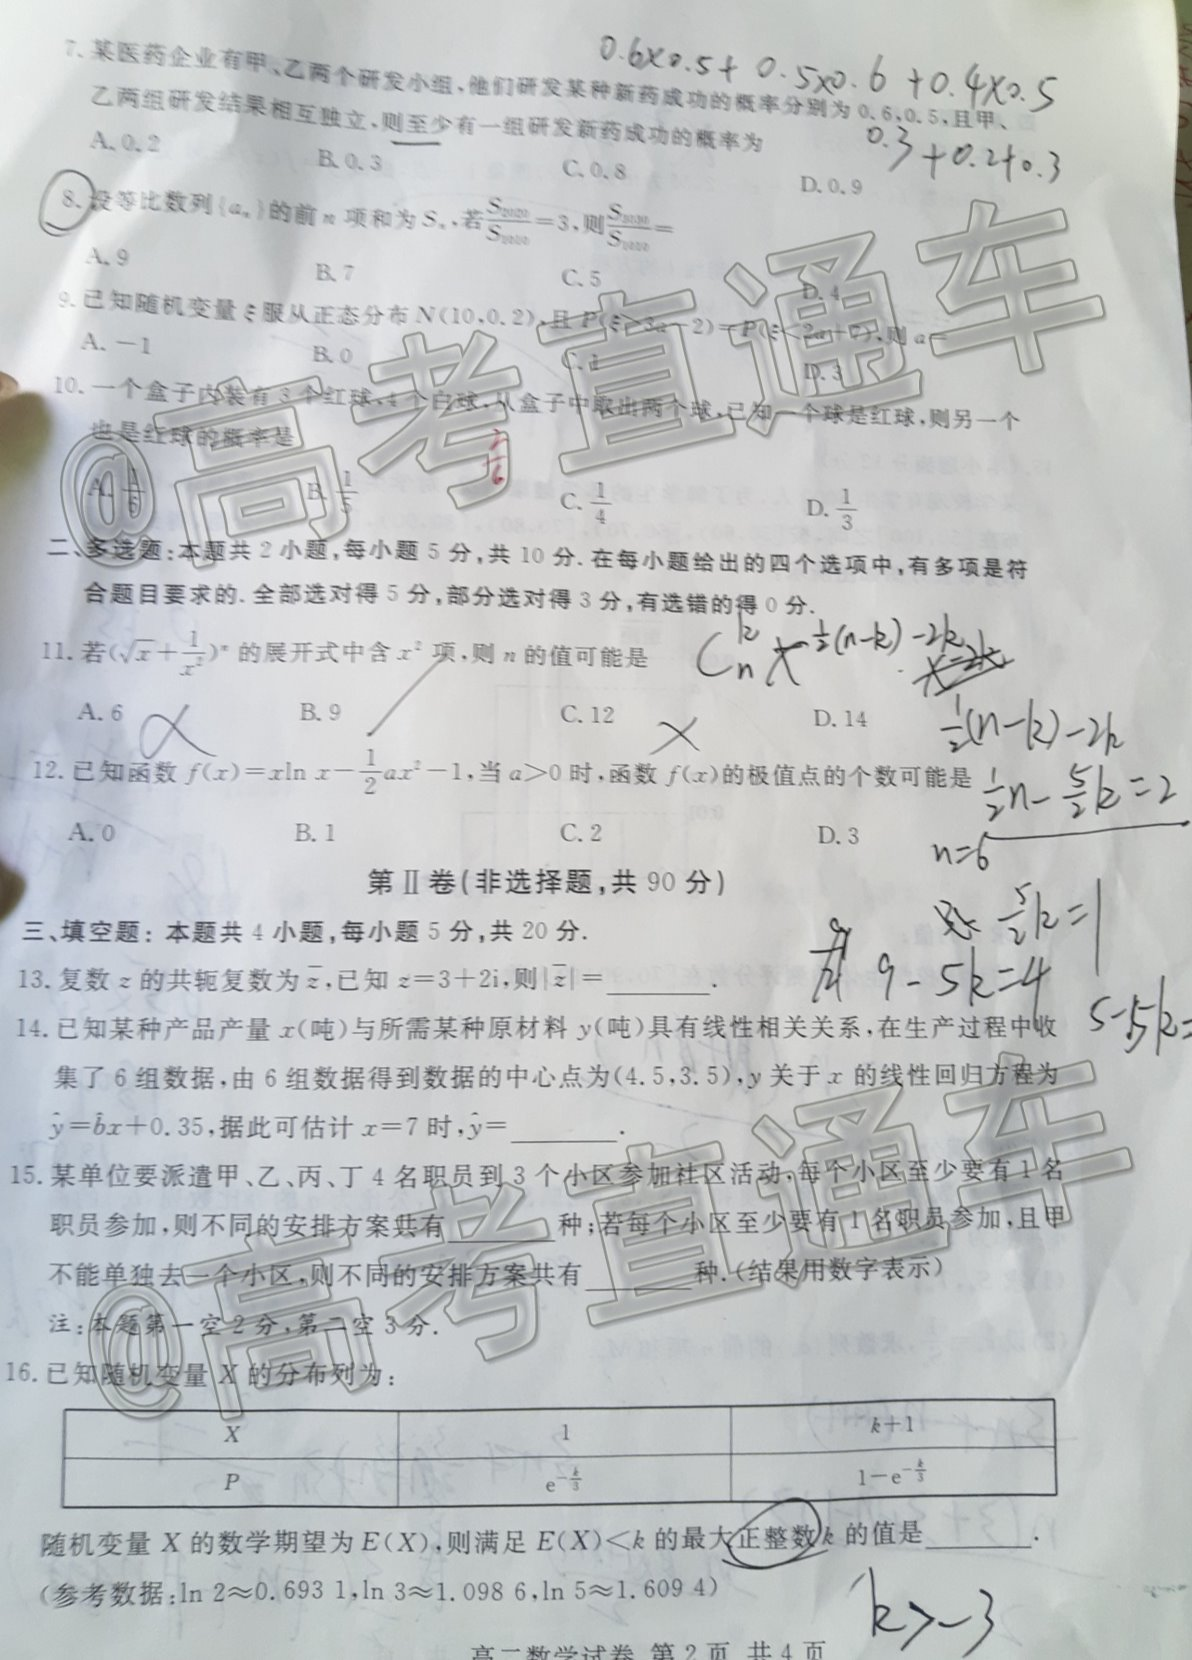 0.6×0.5+0.5×0.6+0.4×0.5
7.某医药企业有甲、乙两个研发小组,他们研发某种新药成功的概率分别为0.6,0.5,且甲、
乙两组研发结果相互独立,则至少有一组研发新药成功的概率为
0.3+0.2+0.3
A.0.2 B.0.3 C.0.8 D.0.9
8.设等比数列{aₙ}的前n项和为Sₙ,若S₂₀₂₀/S₁₀₁₀=3,则S₃₀₃₀/S₁₀₁₀=
A.9 B.7 C.5 D.4
9.已知随机变量ξ服从正态分布N(10,0.2),且P(ξ>3a-2)=P(ξ<2a+7),则a=
A.-1 B.0 C.1 D.3
10.一个盒子内装有3个红球,4个白球,从盒子中取出两个球,已知一个球是红球,则另一个
也是红球的概率是
2/6
A.1/6 B.1/5 C.1/4 D.1/3
二、多选题:本题共2小题,每小题5分,共10分.在每小题给出的四个选项中,有多项是符
合题目要求的.全部选对得5分,部分选对得3分,有选错的得0分.
11.若(√x+1/x²)ⁿ的展开式中含x²项,则n的值可能是
A.6 B.9 C.12 D.14
½(n-k)-2k
12.已知函数f(x)=xln x-½ax²-1,当a>0时,函数f(x)的极值点的个数可能是
½n-5/2k=2
A.0 B.1 C.2 D.3
n=6
第Ⅱ卷(非选择题,共90分)
5/2k=1
三、填空题:本题共4小题,每小题5分,共20分.
9-5k=4
13.复数z的共轭复数为z̄,已知z=3+2i,则|z̄|=________.
14.已知某种产品产量x(吨)与所需某种原材料y(吨)具有线性相关关系,在生产过程中收
集了6组数据,由6组数据得到数据的中心点为(4.5,3.5),y关于x的线性回归方程为
ŷ=b̂x+0.35,据此可估计x=7时,ŷ=________.
15.某单位要派遣甲、乙、丙、丁4名职员到3个小区参加社区活动,每个小区至少要有1名
职员参加,则不同的安排方案共有________种;若每个小区至少要有1名职员参加,且甲
不能单独去一个小区,则不同的安排方案共有________种.(结果用数字表示)
注:本题第一空2分,第二空3分.
16.已知随机变量X的分布列为:
X 1 k+1
P e^(-k/3) 1-e^(-k/3)
随机变量X的数学期望为E(X),则满足E(X)<k的最大正整数k的值是________.
(参考数据:ln 2≈0.693 1,ln 3≈1.098 6,ln 5≈1.609 4)
k>-3
高二数学试卷 第2页 共4页
@高考直通车
@高考直通车